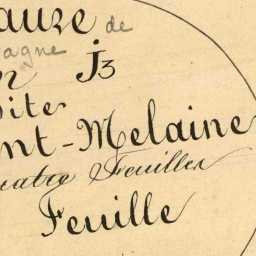 auze de
agne
n J3
dite
nt-Melaine
uatre Feuilles
Feuille